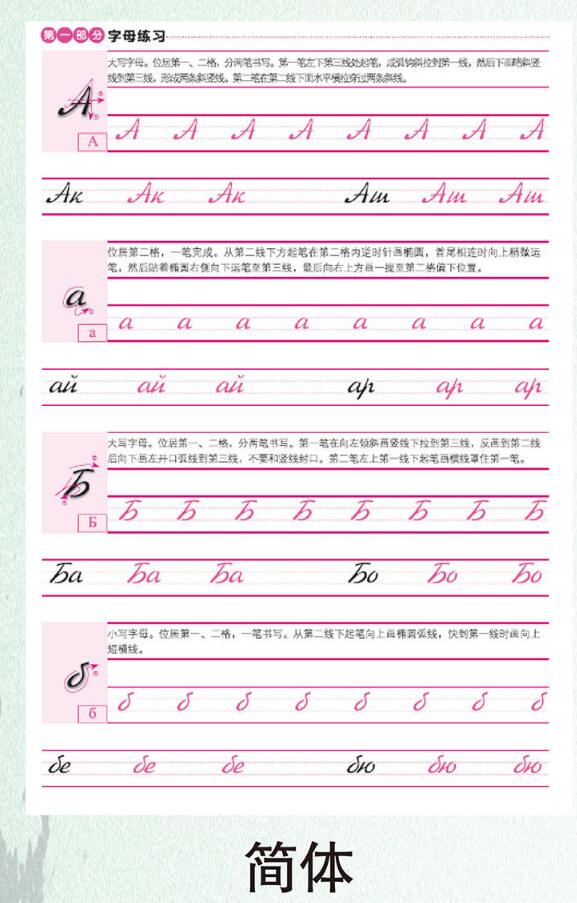 第一部分 字母练习
大写字母。位居第一、二格，分两笔书写。第一笔左下第三线处起笔，成弧钩斜拉到第一线，然后下画略斜竖
线到第三线，形成两条斜竖线。第二笔在第二线下面水平横拉穿过两条斜线。
А
А
А А А А А А А А
Ак Ак Ак Аш Аш Аш
位居第二格，一笔完成。从第二线下方起笔在第二格内逆时针画椭圆，首尾相连时向上稍微运
笔，然后贴着椭圆右侧向下运笔至第三线，最后向右上方画一提至第二格偏下位置。
а
а
а а а а а а а а
ай ай ай ар ар ар
大写字母。位居第一、二格，分两笔书写。第一笔在向左倾斜画竖线下拉到第三线，反画到第二线
后向下画左开口弧线到第三线，不要和竖线封口。第二笔左上第一线下起笔画横线罩住第一笔。
Б
Б
Б Б Б Б Б Б Б Б
Ба Ба Ба Бо Бо Бо
小写字母。位居第一、二格，一笔书写。从第二线下起笔向上画椭圆弧线，快到第一线时画向上
短横线。
б
б
б б б б б б б б
бе бе бе бю бю бю
简体